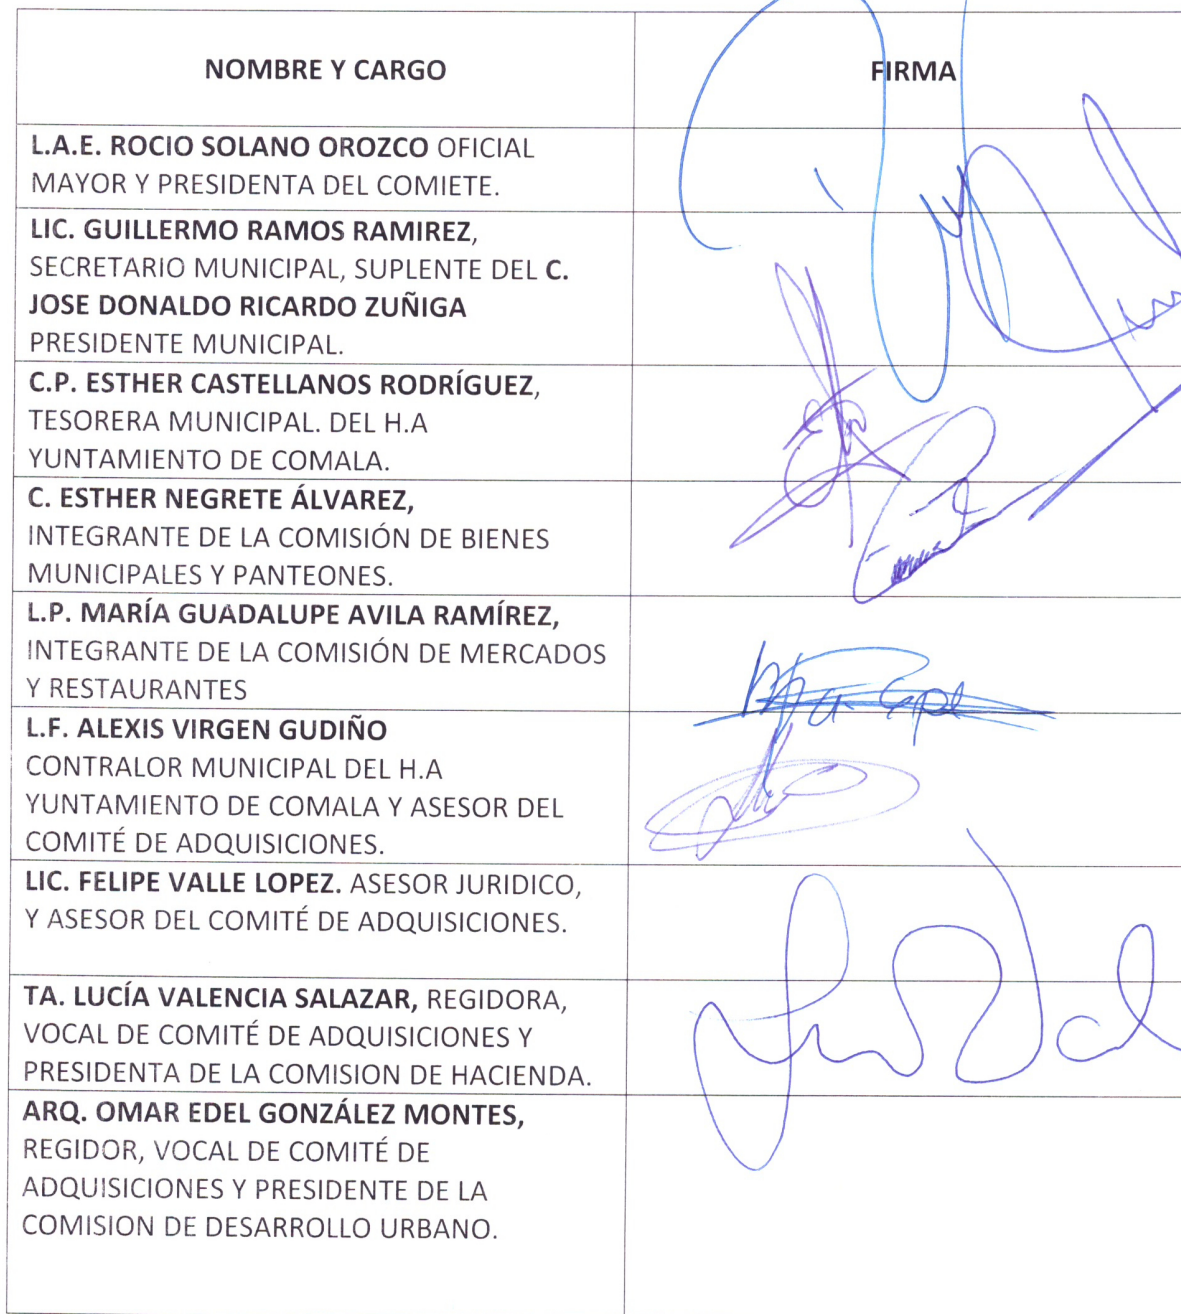 NOMBRE Y CARGO
FIRMA
L.A.E. ROCIO SOLANO OROZCO OFICIAL
MAYOR Y PRESIDENTA DEL COMIETE.
LIC. GUILLERMO RAMOS RAMIREZ,
SECRETARIO MUNICIPAL, SUPLENTE DEL C.
JOSE DONALDO RICARDO ZUÑIGA
PRESIDENTE MUNICIPAL.
C.P. ESTHER CASTELLANOS RODRÍGUEZ,
TESORERA MUNICIPAL. DEL H.A
YUNTAMIENTO DE COMALA.
C. ESTHER NEGRETE ÁLVAREZ,
INTEGRANTE DE LA COMISIÓN DE BIENES
MUNICIPALES Y PANTEONES.
L.P. MARÍA GUADALUPE AVILA RAMÍREZ,
INTEGRANTE DE LA COMISIÓN DE MERCADOS
Y RESTAURANTES
L.F. ALEXIS VIRGEN GUDIÑO
CONTRALOR MUNICIPAL DEL H.A
YUNTAMIENTO DE COMALA Y ASESOR DEL
COMITÉ DE ADQUISICIONES.
LIC. FELIPE VALLE LOPEZ. ASESOR JURIDICO,
Y ASESOR DEL COMITÉ DE ADQUISICIONES.
TA. LUCÍA VALENCIA SALAZAR, REGIDORA,
VOCAL DE COMITÉ DE ADQUISICIONES Y
PRESIDENTA DE LA COMISION DE HACIENDA.
ARQ. OMAR EDEL GONZÁLEZ MONTES,
REGIDOR, VOCAL DE COMITÉ DE
ADQUISICIONES Y PRESIDENTE DE LA
COMISION DE DESARROLLO URBANO.